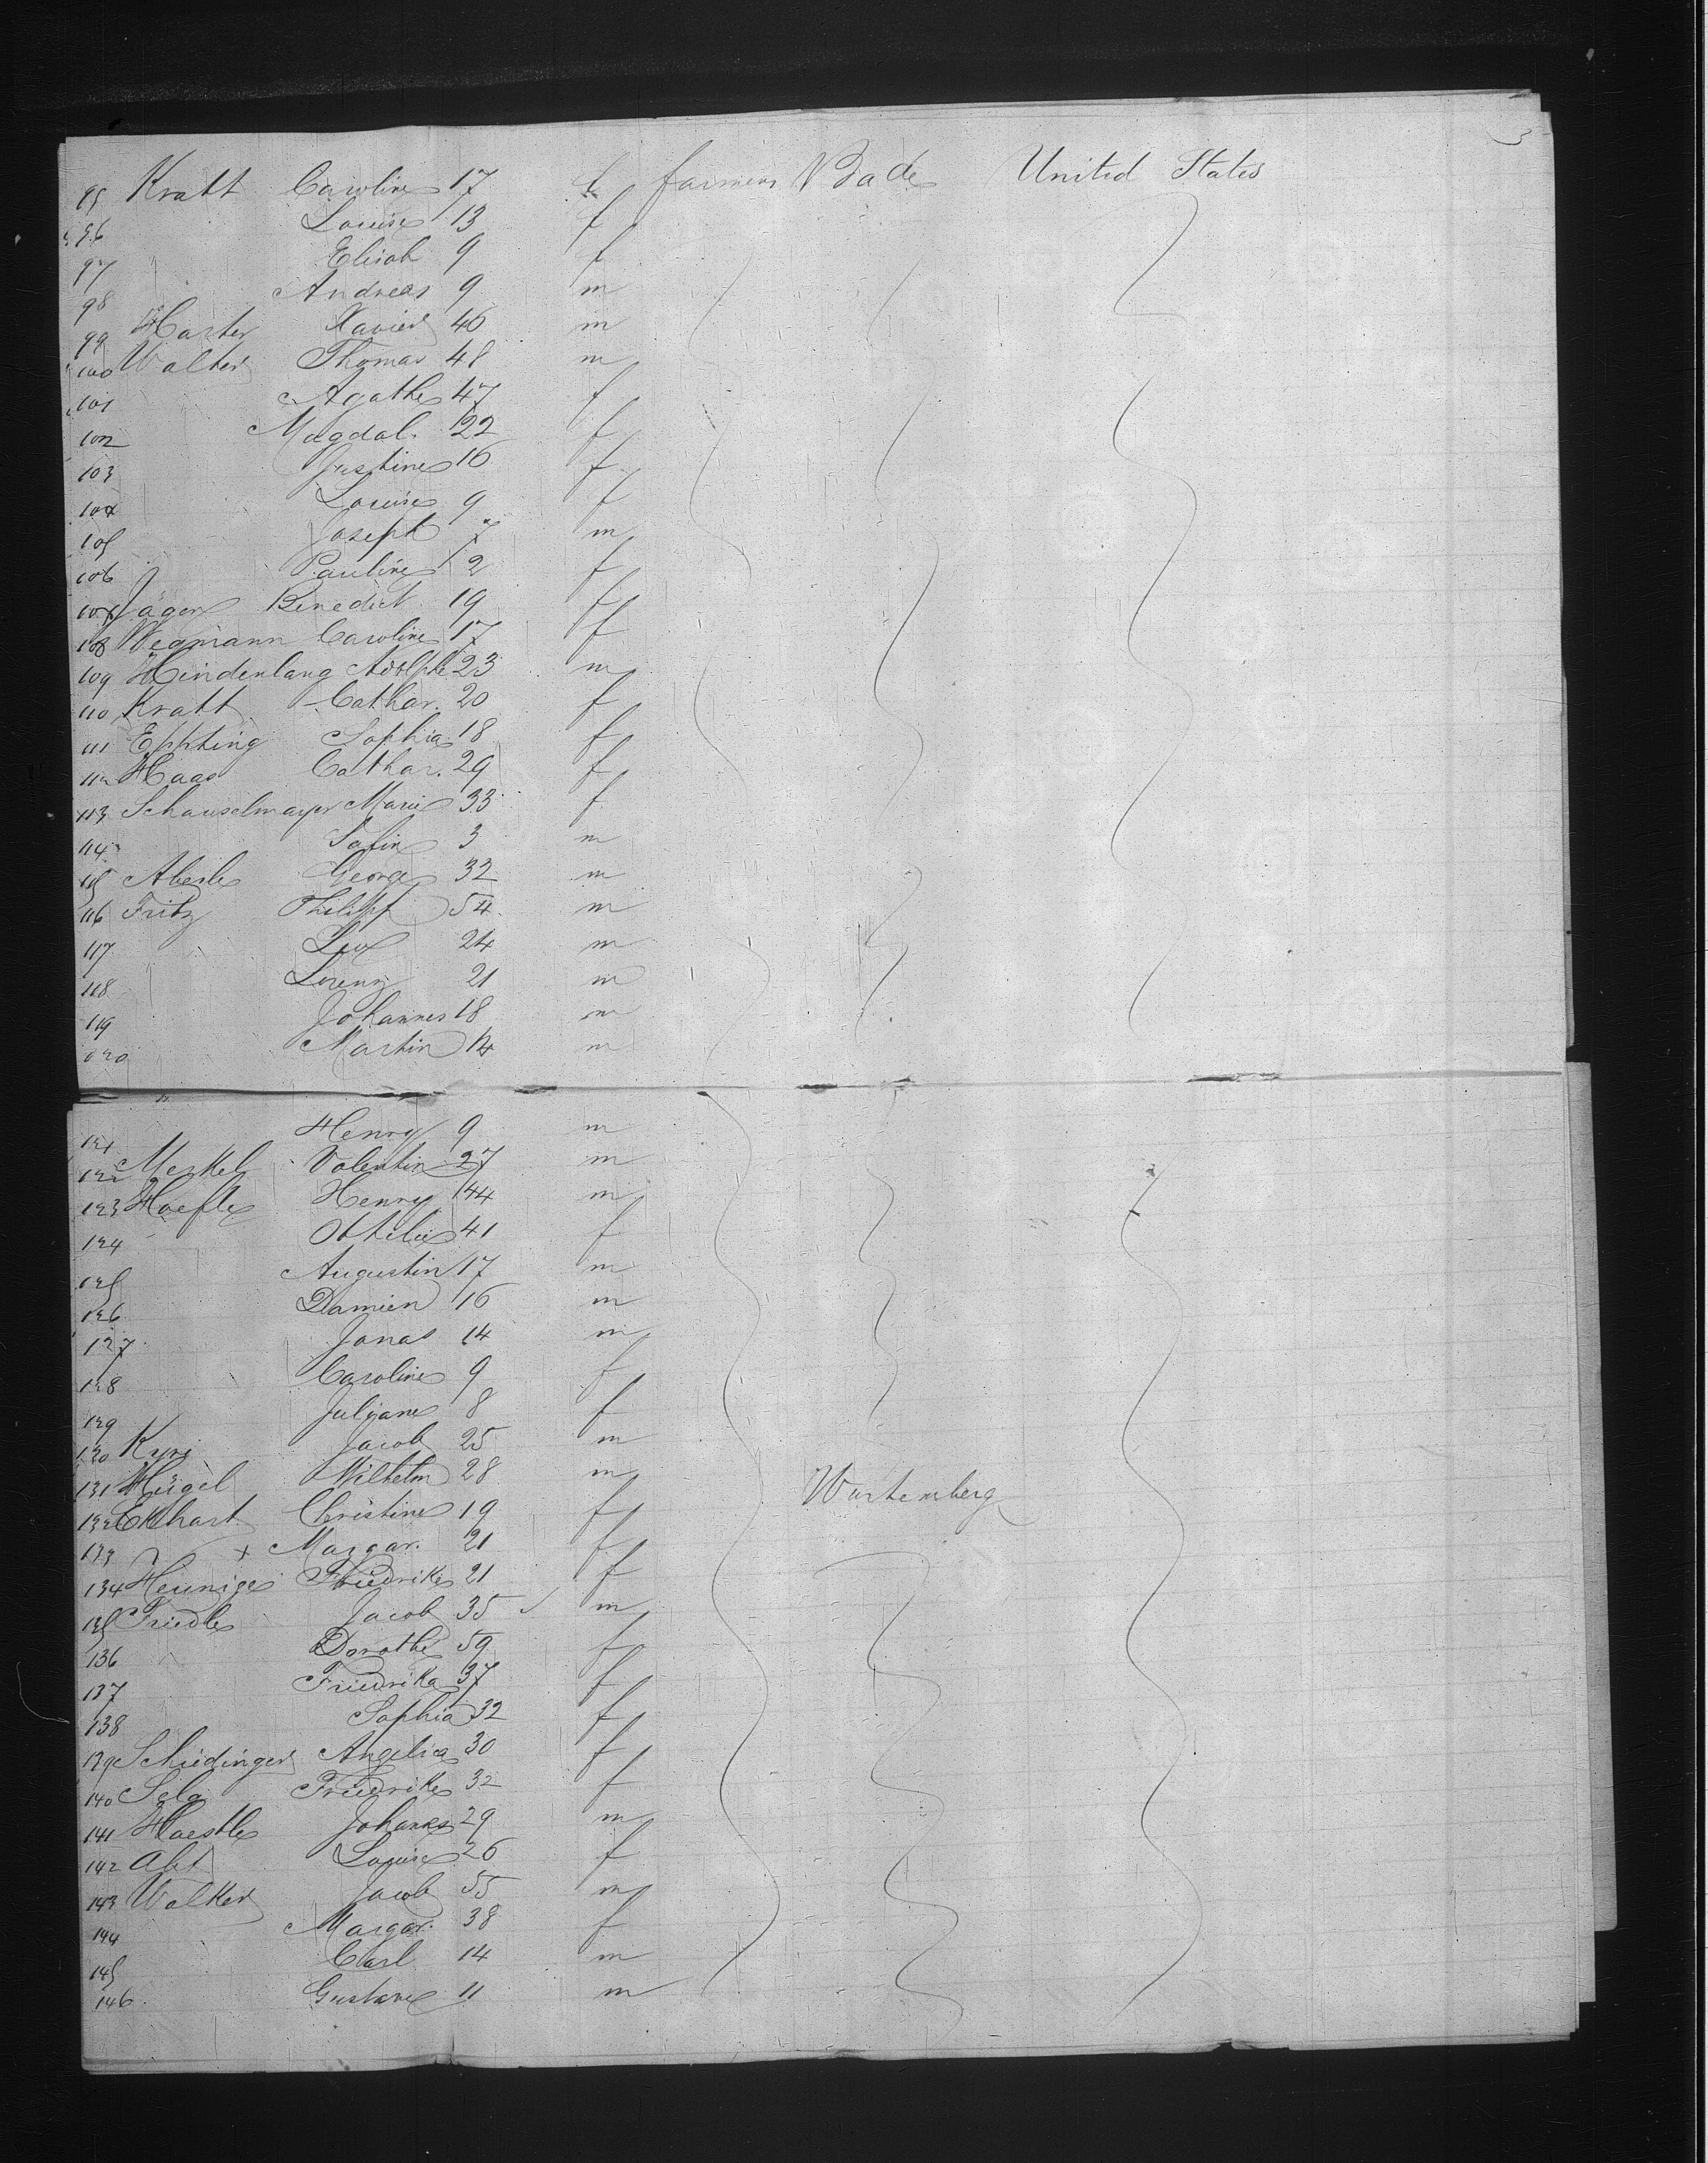 3
95 Kratt Caroline 17 f farmers Bade United States
96 Louise 13 f
97 " Elisab 9 f
98 Andreas 9 m
99 Harter Xavier 46 m
100 Walter Thomas 48 m
101 Agathe 47 f
102 Magdal. 22 f
103 Justine 16 f
104 Louise 9 f
105 Joseph 7 m
106 Pauline 2 f
107 Jäger Benedict 19 f
108 Wegmann Caroline 17 f
109 Hindenlang Adolphe 23 m
110 Kratt Cathar. 20 f
111 Eppting Sophia 18 f
112 Haas Cathar. 29 f
113 Schauselmayer Marie 33 f
114 3 m
115 Aberle George 32 m
116 Fritz Philipp 54 m
117 Leo 24 m
118 Lorenz 21 m
119 Johannes 18 m
120 Martin 14 m
121 Henry 9 m
122 Merkel Valentin 27 m
123 Haefle Henry 44 m
124 Ottilie 41 f
125 Augustin 17 m
126 Damien 16 m
127 Jonas 14 m
128 Caroline 9 f
129 Juliane 8 f
130 Jacob 25 m
131 Heigel Wilhelm 28 m Wurtemberg
132 Ekhart Christine 19 f
133 x Margar. 21 f
134 Friedrike 21 f
135 Friedle Jacob 35 m
136 Dorothe 59 f
137 Friedrika 37 f
138 Sophia 32 f
139 Schiedinger Angelica 30 f
140 Friedrike 32 f
141 Haestle Johanes 29 m
142 Abt Louise 26 f
143 Walker Jacob 55 m
144 Margar. 38 f
145 Carl 14 m
146 Gustave 11 m